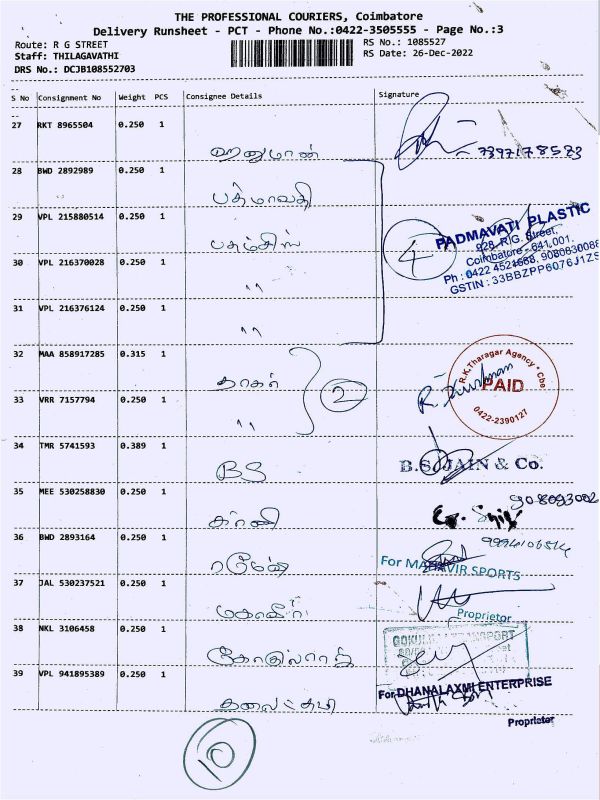 THE PROFESSIONAL COURIERS, Coimbatore
Delivery Runsheet - PCT - Phone No.:0422-3505555 - Page No.:3
Route: R G STREET
RS No.: 1085527
Staff: THILAGAVATHI
RS Date: 26-Dec-2022
DRS No.: DCJB108552703
S No Consignment No Weight PCS Consignee Details Signature
27 RKT 8965504 0.250 1
ஹனுமான் 7397178583
28 BWD 2892989 0.250 1
பத்மாவதி
29 VPL 215880514 0.250 1
4
PADMAVATI PLASTIC
928, R.G. Street,
Coimbatore - 641 001.
Ph : 0422 4521668, 9080630088
GSTIN : 33BBZPP6076J1ZS
30 VPL 216370028 0.250 1
"
31 VPL 216376124 0.250 1
"
32 MAA 858917285 0.315 1
தாகர்
2
R.K.Tharagar Agency * Cbe
PAID
0422-2390127
33 VRR 7157794 0.250 1
"
34 TMR 5741593 0.389 1
BS
B.S. JAIN & Co.
35 MEE 530258830 0.250 1
908093002
36 BWD 2893164 0.250 1
ரமேஷ்
For MAHAVIR SPORTS
37 JAL 530237521 0.250 1
மகாவீர்
Proprietor
38 NKL 3106458 0.250 1
39 VPL 941895389 0.250 1
For DHANALAXMI ENTERPRISE
Proprietor
10